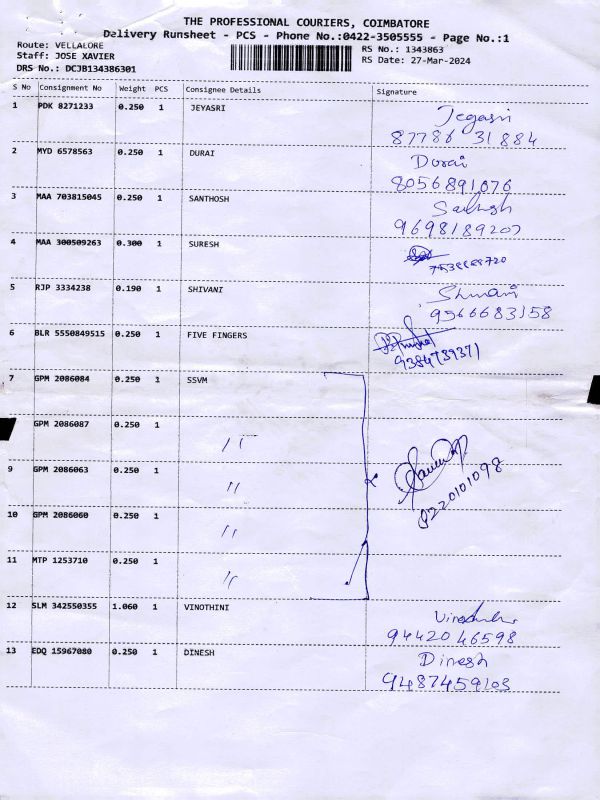 THE PROFESSIONAL COURIERS, COIMBATORE
Delivery Runsheet - PCS - Phone No.:0422-3505555 - Page No.:1
Route: VELLALORE RS No.: 1343863
Staff: JOSE XAVIER RS Date: 27-Mar-2024
DRS No.: DCJB134386301
S No Consignment No Weight PCS Consignee Details Signature
1 PDK 8271233 0.250 1 JEYASRI Jegasri
87786 31884
2 MYD 6578563 0.250 1 DURAI Durai
8056891076
3 MAA 703815045 0.250 1 SANTHOSH
9698189207
4 MAA 300509263 0.300 1 SURESH
5 RJP 3334238 0.190 1 SHIVANI Shivani
9566683158
6 BLR 5550849515 0.250 1 FIVE FINGERS
9384739371
7 GPM 2086084 0.250 1 SSVM
GPM 2086087 0.250 1 "
9 GPM 2086063 0.250 1 "
10 GPM 2086060 0.250 1 "
11 MTP 1253710 0.250 1 "
8220101098
12 SLM 342550355 1.060 1 VINOTHINI
9442046598
13 EDQ 15967080 0.250 1 DINESH Dinesh
9487459103